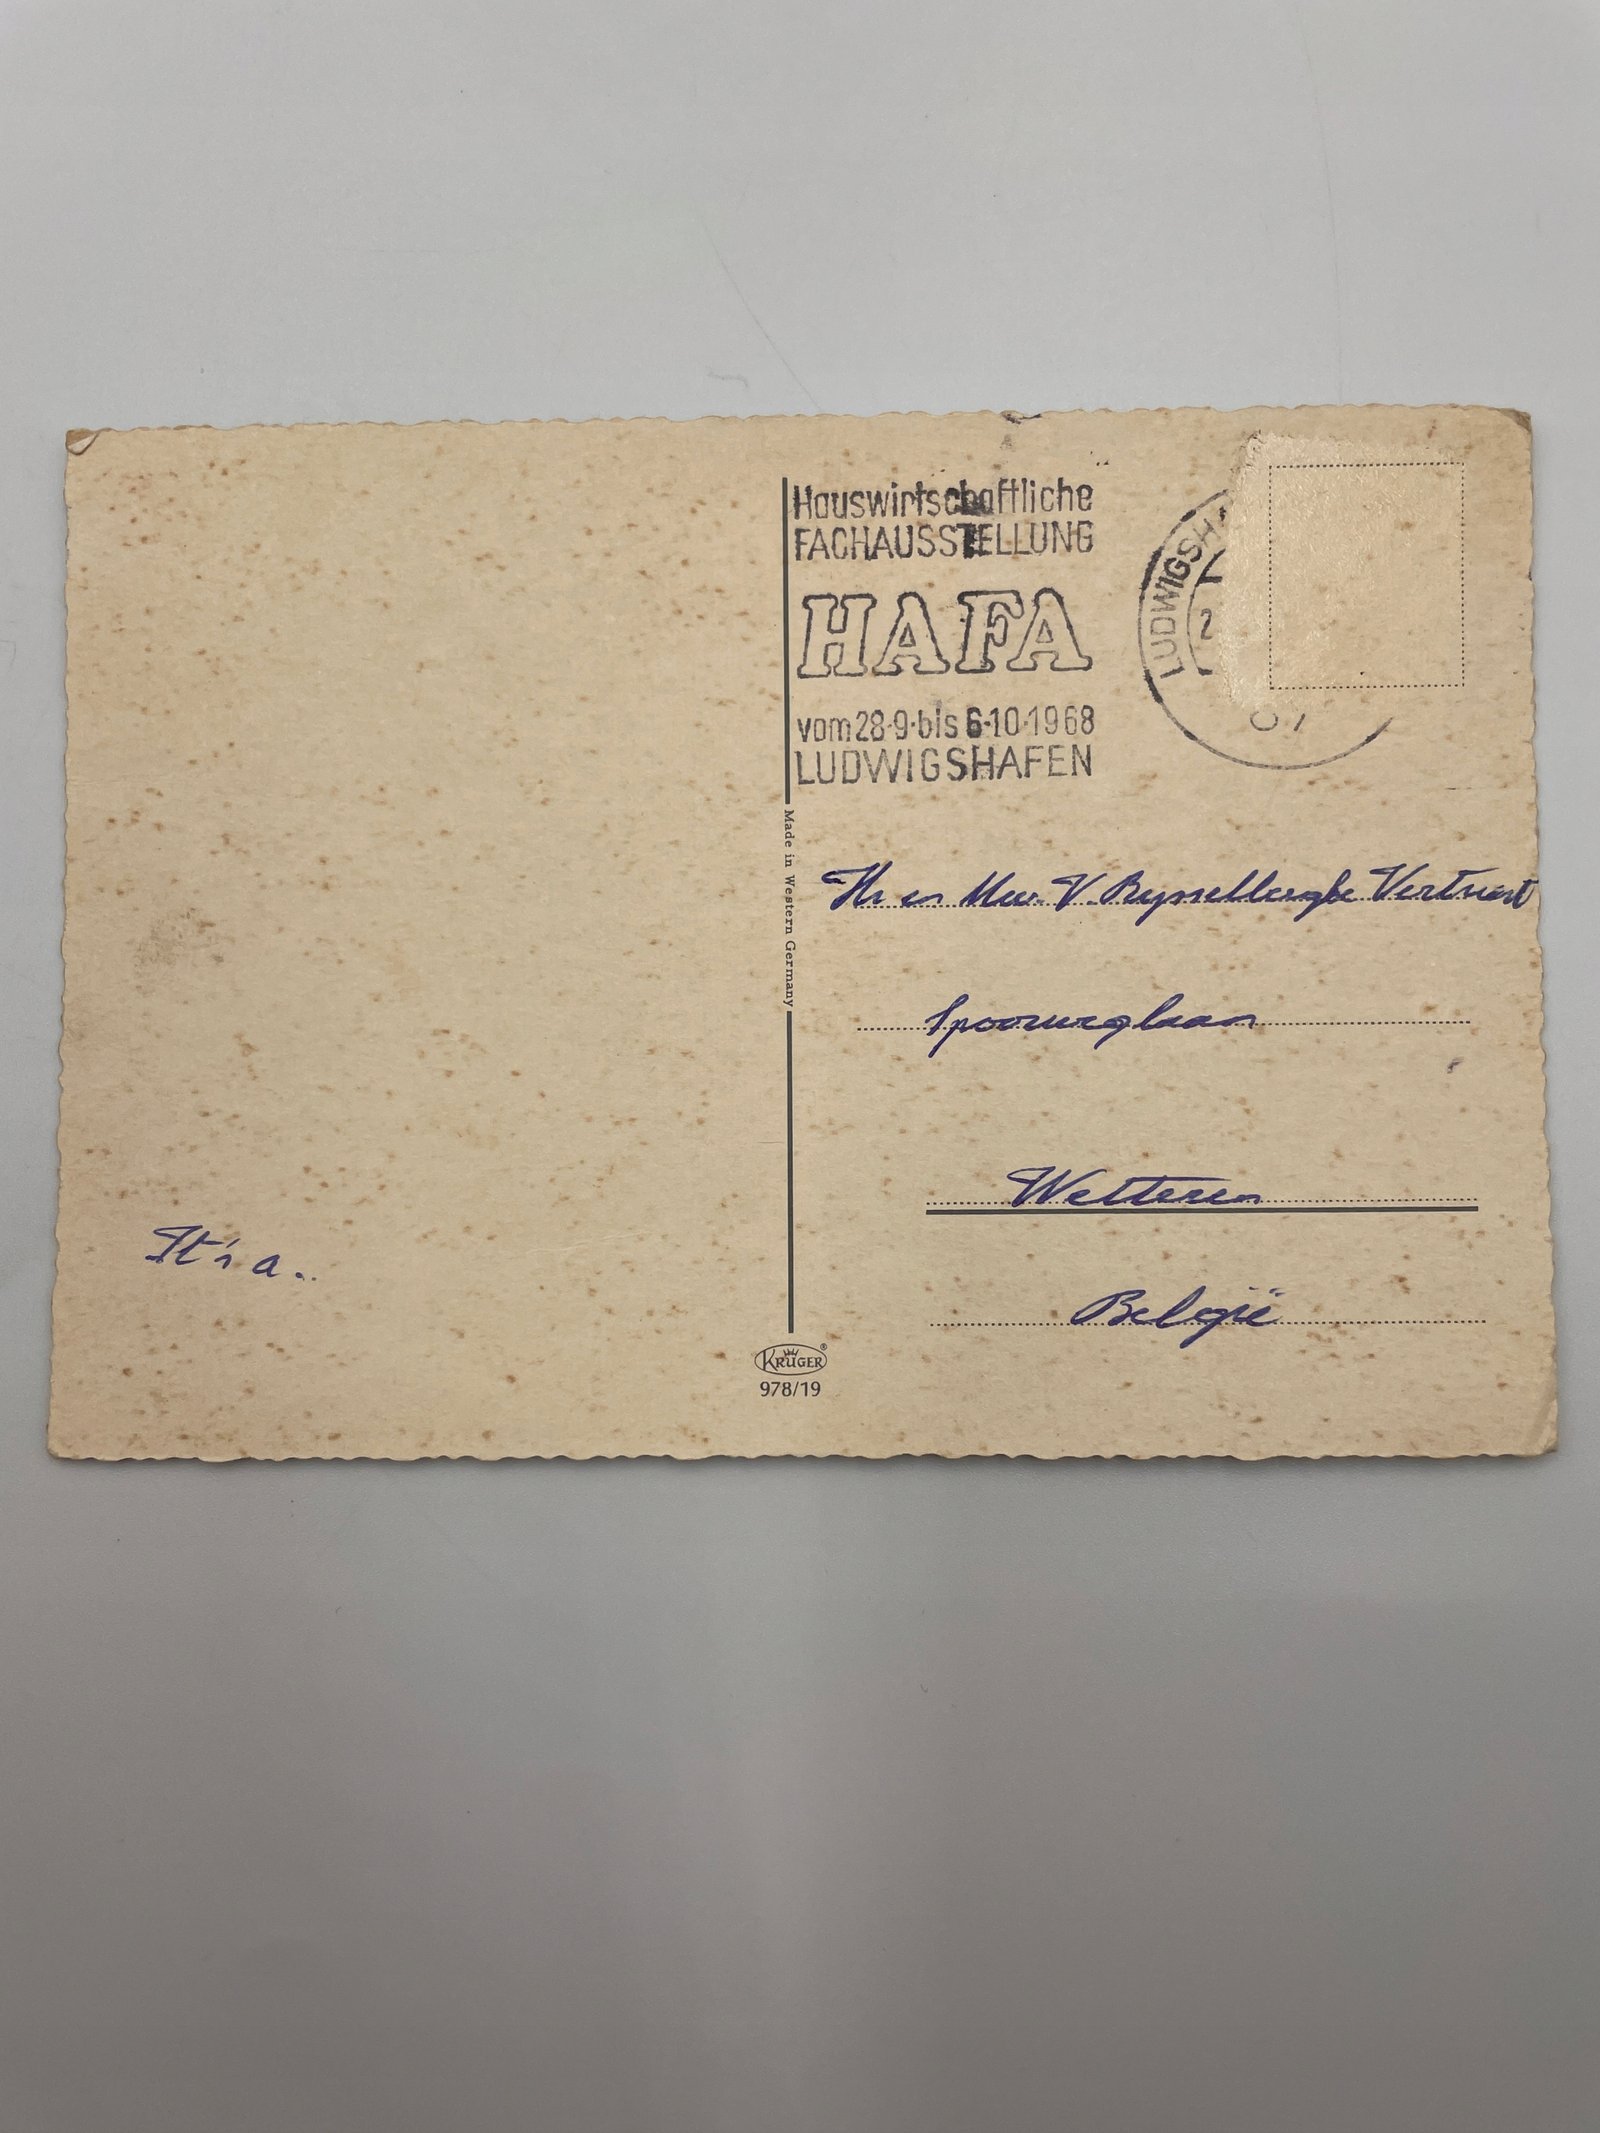 Hauswirtschaftliche
FACHAUSSTELLUNG
HAFA
vom 28·9·bis 6·10·1968
LUDWIGSHAFEN
LUDWIGSHA
2
07
Made in Western Germany
Hr en Mevr. V. Rysselberghe Vertriest
Spoorweglaan
Wetteren
België
KRÜGER®
978/19